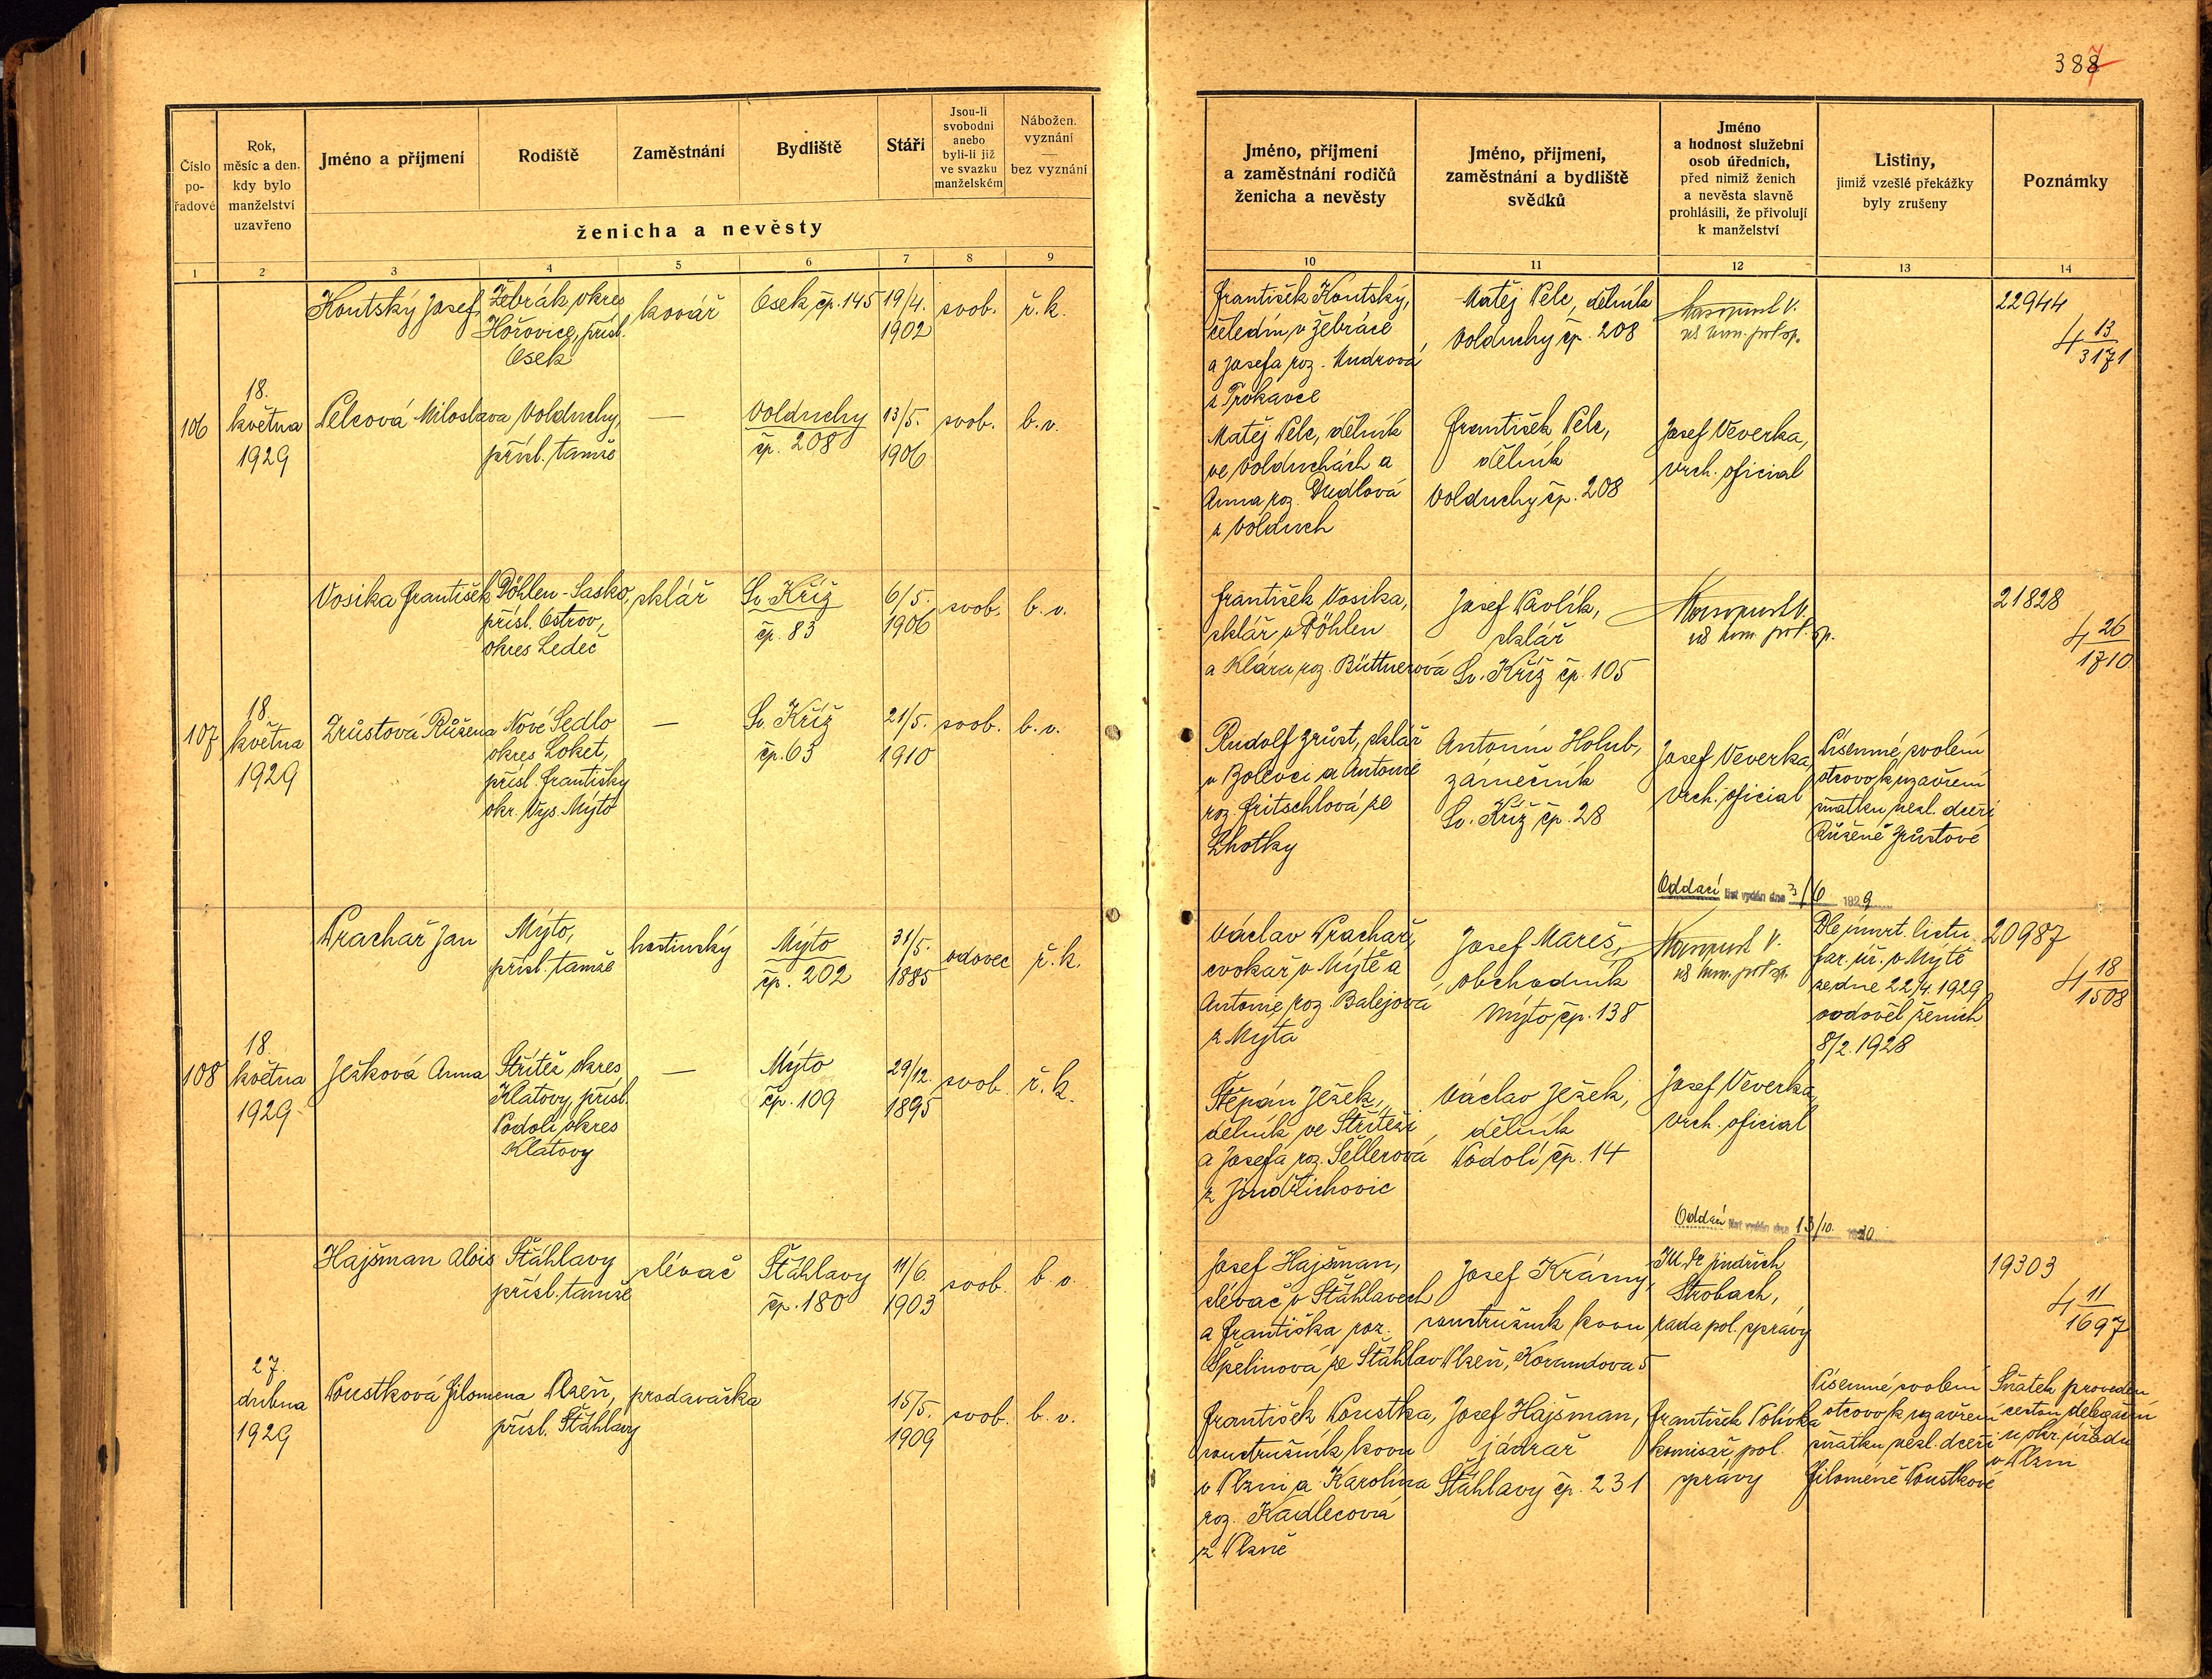 387
Číslo po-řadové
Rok, měsíc a den. kdy bylo manželství uzavřeno
Jméno a příjmení
Rodiště
Zaměstnání
Bydliště
Stáří
Jsou-li svobodni anebo byli-li již ve svazku manželském
Nábožen. vyznání — bez vyznání
ženicha a nevěsty
1 2 3 4 5 6 7 8 9
Koutský Josef
Žebrák, okres
Hořovice, přísl.
Osek
kovář
Osek, čp. 145
19/4.
1902
svob.
ř. k.
106
18.
května
1929
Pelcová Miloslava
Volduchy,
přísl. tamže
—
Volduchy
čp. 208
13/5.
1906
svob.
b. v.
Vosika František
Döhlen - Sasko,
přísl. Ostrov,
okres Ledeč
sklář
Sv. Kříž
čp. 83
6/5.
1906
svob.
b. v.
107
18.
května
1929
Zrůstová Růžena
Nové Sedlo
okres Loket,
přísl. Františky
okr. Vys. Mýto
—
Sv. Kříž
čp. 63
21/5.
1910
svob.
b. v.
Prachař Jan
Mýto,
přísl. tamže
hostinský
Mýto
čp. 202
31/5.
1885
vdovec
ř. k.
108
18.
května
1929
Ježková Anna
Střítež okres
Klatovy, přísl.
Podolí, okres
Klatovy
—
Mýto
čp. 109
29/12.
1895
svob.
ř. k.
Hajšman Alois
Šťáhlavy
přísl. tamže
slévač
Šťáhlavy
čp. 180
11/6.
1903
svob.
b. v.
27.
dubna
1929
Poustková Filomena
Plzeň,
přísl. Šťáhlavy
prodavačka
15/5.
1909
svob.
b. v.
Jméno, příjmení a zaměstnání rodičů ženicha a nevěsty
Jméno, příjmení, zaměstnání a bydliště svědků
Jméno a hodnost služební osob úředních, před nimiž ženich a nevěsta slavně prohlásili, že přivolují k manželství
Listiny, jimiž vzešlé překážky byly zrušeny
Poznámky
10 11 12 13 14
František Koutský,
čeledín v Žebráce
a Josefa roz. Mudrová
z Trokavce
Matěj Pelc, dělník
Volduchy čp. 208
22944
4 13/3171
Matěj Pelc, dělník
ve Volduchách a
Anna roz. Dudlová
z Volduch
František Pelc,
dělník
Volduchy čp. 208
Josef Veverka,
vrch. oficial
František Vosika,
sklář v Döhlen
a Klára roz. Büttnerová
Josef Pavlík,
sklář
Sv. Kříž čp. 105
21828
4 26/1710
Rudolf Zrůst, sklář
v Bolevci a Antonie
roz. Fritschlová ze
Lhotky
Antonín Holub,
zámečník
Sv. Kříž čp. 28
Josef Veverka,
vrch. oficial
Písemné svolení
otcovo k uzavření
sňatku nezl. dceři
Růženě Zrůstové
Oddací list vydán dne 3/6 1929
Václav Prachař,
cvokař v Mýtě a
Antonie, roz. Balejová
z Mýta
Josef Mareš,
obchodník
Mýto, čp. 138
Dle úmrt. listu
far. úř. v Mýtě
ze dne 22/4. 1929
ovdověl ženich
8/2. 1928
20987
4 18/1508
Štěpán Ježek,
dělník ve Stříteži
a Josefa roz. Sellerová
z Jindřichovic
Václav Ježek,
dělník
Podolí, čp. 14
Josef Veverka,
vrch. oficial
Oddací list vydán dne 13/10. 1930
Josef Hajšman,
slévač v Šťáhlavech
a Františka roz.
Špelinová ze Šťáhlav
Josef Krásný,
soustružník kovu
Plzeň, Korandova 5
JU. Dr. Jindřich
Strobach,
rada pol. správy
19303
4 11/1697
František Poustka,
soustružník kovu
v Plzni a Karolína
roz. Kadlecová
z Plzně
Josef Hajšman,
jádrař
Šťáhlavy čp. 231
František Polívka
komisař pol.
správy
Písemné svolení
otcovo k uzavření
sňatku nezl. dceři
Filomeně Poustkové
Sňatek proveden
cestou delegační
u okr. úřadu
v Plzni